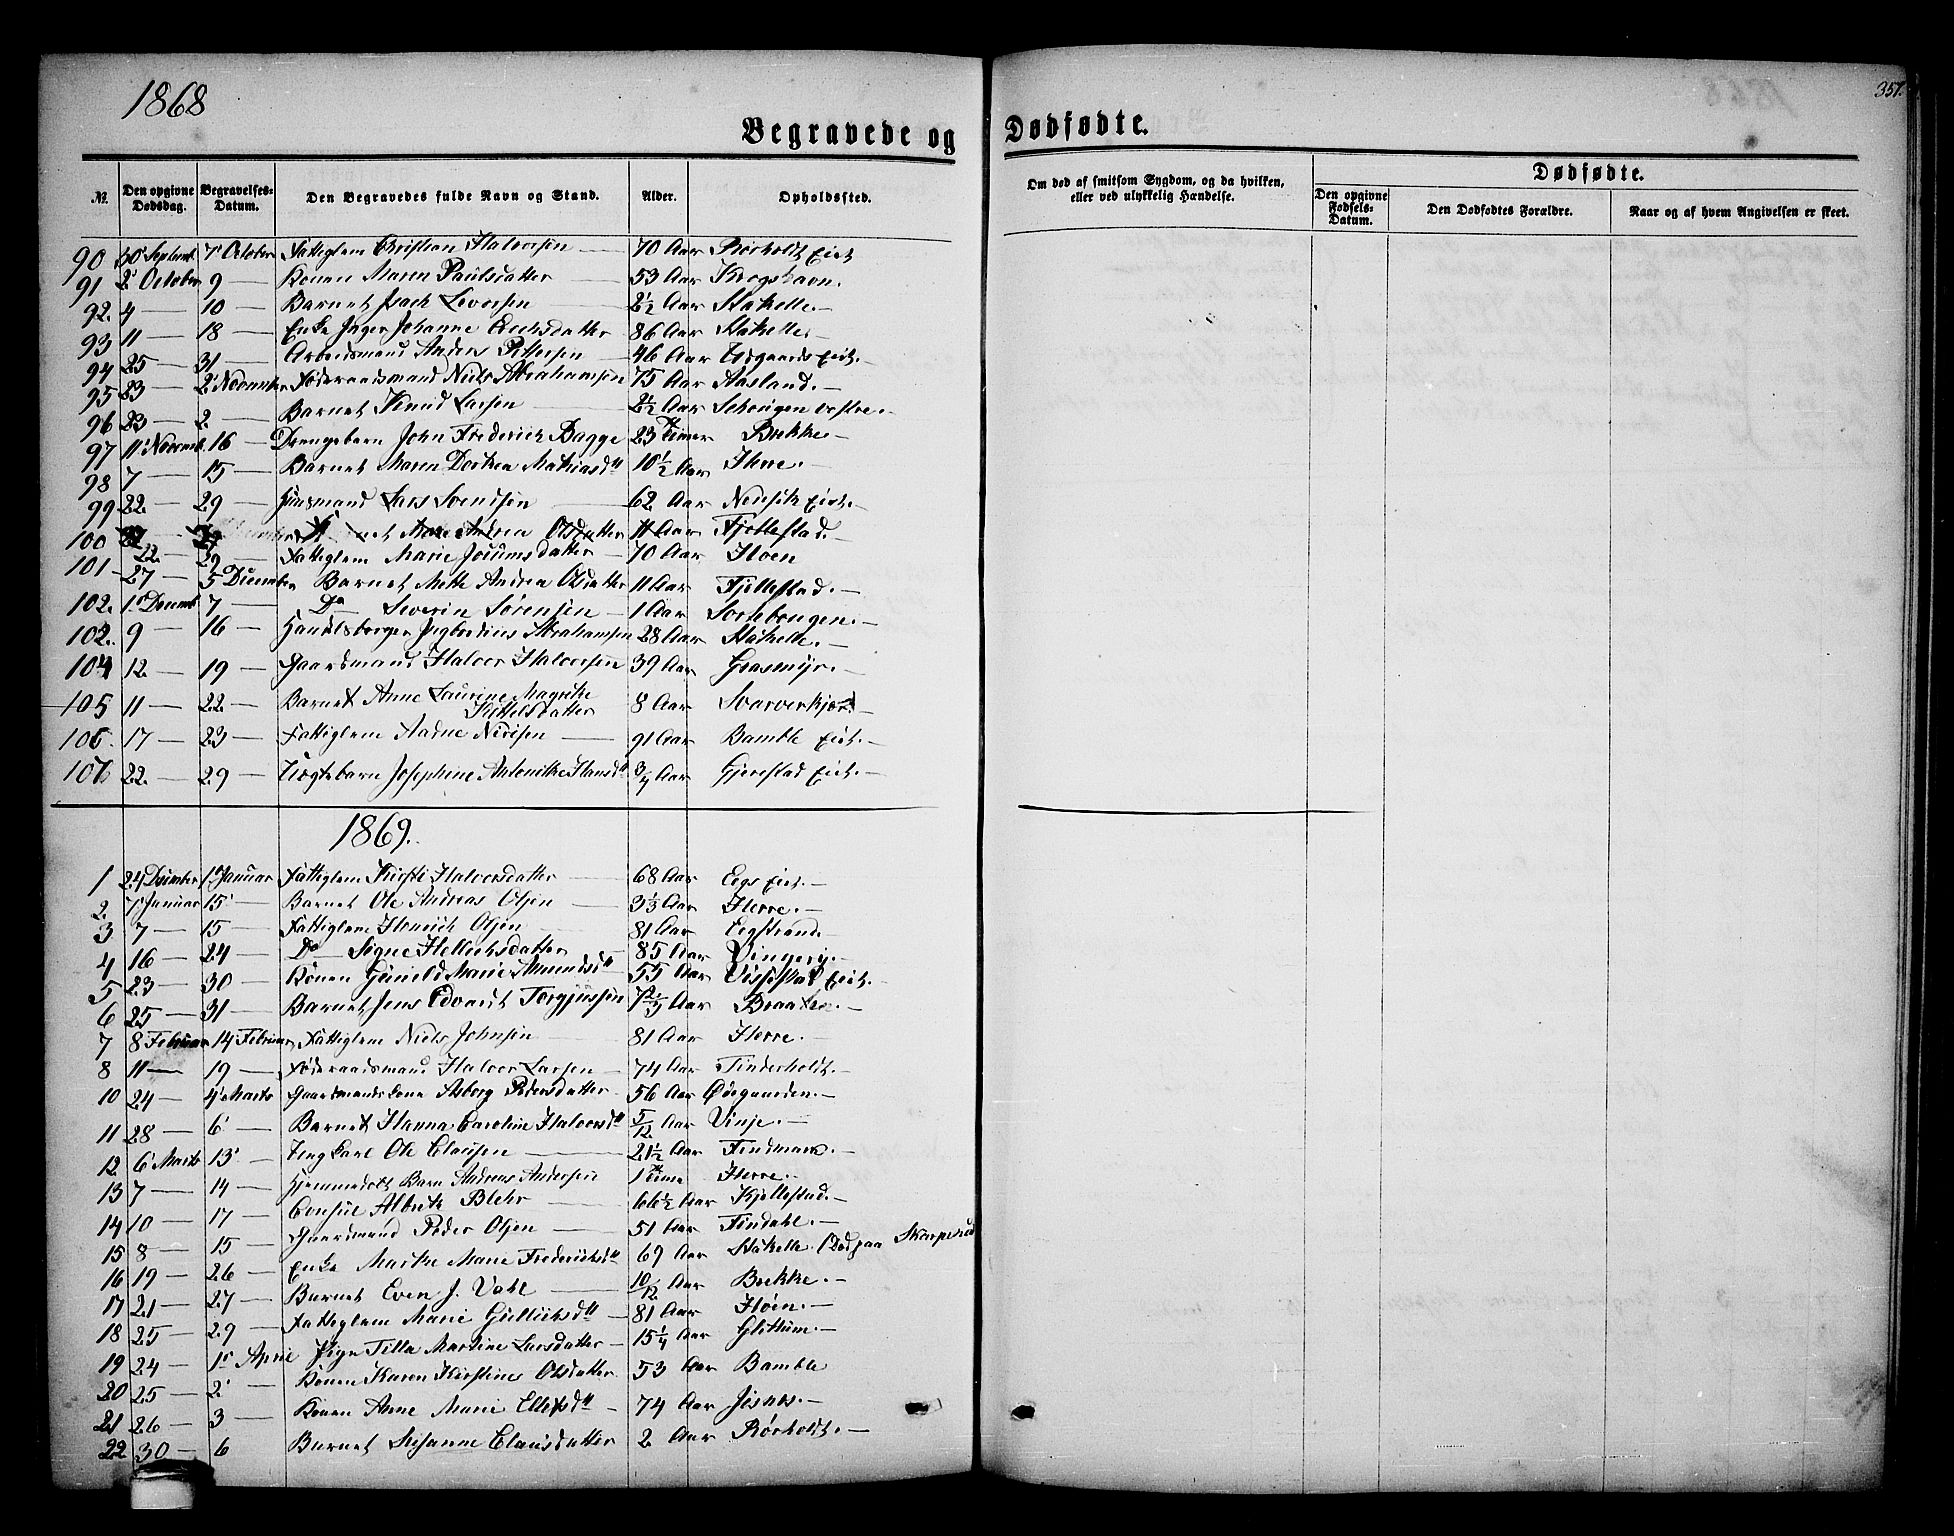 1868
357.
Begravede og Dødfødte.
№ Den opgivne Dødsdag. Begravelses-Datum. Den Begravedes fulde Navn og Stand. Alder. Opholdssted. Om død af smitsom Sygdom, og da hvilken, eller ved ulykkelig Hændelse. Dødfødte. Den opgivne Fødsels-Datum. Den Dødfødtes Forældre. Naar og af hvem Angivelsen er skeet.
90 30 Septemb. 7 October Fattiglem Christian Halvorsen 70 Aar Rørholdt Eiet
91 2 October 9 — Konen Maren Paulsdatter 53 Aar Krogshavn.
92. 4 — 10 — Barnet Isach Leversen 2½ Aar Stathelle.
93 11 — 18 — Enke Inger Johanne Erichsdatter 86 Aar Stathelle.
94 25 — 31 — Arbeidsmand Anders Pettersen 46 Aar
95 23 — 2 November Føderaadsmand Niels Abrahamsen 75 Aar Aasland.
96 23 — 2 — Barnet Knud Larsen 2½ Aar vestre.
97 11 Novemb. 16 — Drengebarn John Frederich Bagge 23 Timer Brekke
98 7 — 15 — Barnet Maren Dorthea Mathiasd. 10½ Aar Herre.
99 22. — 29 — Huusmand Lars Svendsen 62 Aar
100 Andrea Olsdatter 11 Aar Fjellestad.
22. — 29 — Fattiglem Marie Joramsdatter 70 Aar Hoen
101 27 — 5 December Barnet Mette Andrea Olsdatter 11 Aar Fjellestad.
102. 1 Decemb 7 — Do Severin Sørensen 1 Aar
102. 9 — 16 — Handelsborger Ingbertinus Abrahamsen 28 Aar Stathelle
104 12. — 19 — Gaardmand Halvor Halvorsen 39 Aar Grasmyr.
105 11 — 22 — Barnet Anne Laurine Magrethe Kittelsdatter 8 Aar Svarverkjær.
106 17 — 23 — Fattiglem Aadne Nirisen 91 Aar Bamble Eiet.
107 22. — 29 — Uægtebarn Josephine Antonette Hansd. ¾ Aar Gjerstad Eiet.
1869.
1 24 December 1 Januar Fattiglem Kirsti Halvorsdatter 68 Aar Eegs Eiet.
2. 7 Januar 15 — Barnet Ole Andreas Olsen 3⅓ Aar Herre.
3 7 — 15 — Fattiglem Henrich Olsen 81 Aar Eegstrand.
4 16 — 24 — Do — Signe Hellichsdatter 85 Aar
5 23 — 30 — Konen Gunild Marie Amundsd. 55 Aar Vissestad Eiet.
6 25 — 31 — Barnet Jens Edvardt Torgjussen 7⅔ Aar
7 8 Februar 14 Februar Fattiglem Niels Johnsen 81 Aar Herre.
8 11 — 19 — Føderaadsmand Halvor Larsen 74 Aar Tinderholdt.
10 24 — 4 Marts Gaardmandskone Asborg Pedersdatter 56 Aar Ødegaarden.
11 28 — 6 — Barnet Hanna Caroline Halvorsd. 5/12 Aar Vinje.
12. 6 Marts 13 — Ungkarl Ole Clausen 21½ Aar Findmark.
13 7 — 14 — Hjemmedøbt Barn Andreas Andersen 1 Time Herre.
14 10 — 17 — Consul Albreth Blehr 66½ Aar Kjellestad.
15 8 — 15 — Gaardmand Peder Olsen 51 Aar Findahl.
16 19 — 26 — Enke Marthe Marie Frederichsd. 69 Aar Stathelle (Død paa
17 21 — 27 — Barnet Even J. Vahl 10/12 Aar Brekke.
18 25 — 29 — Fattiglem Marie Gullichsd. 81 Aar Høen.
19 24 — 1 April Pige Tilla Martine Larsdatter 15¼ Aar Glittum.
20 25 — 2 — Konen Karen Kirstine Olsdatter 53 Aar Bamble
21 26 — 3 — Konen Anne Marie Ellefsd. 74 Aar
22 30 — 6 Barnet Susanne Clausdatter 2 Aar Rørholdt.